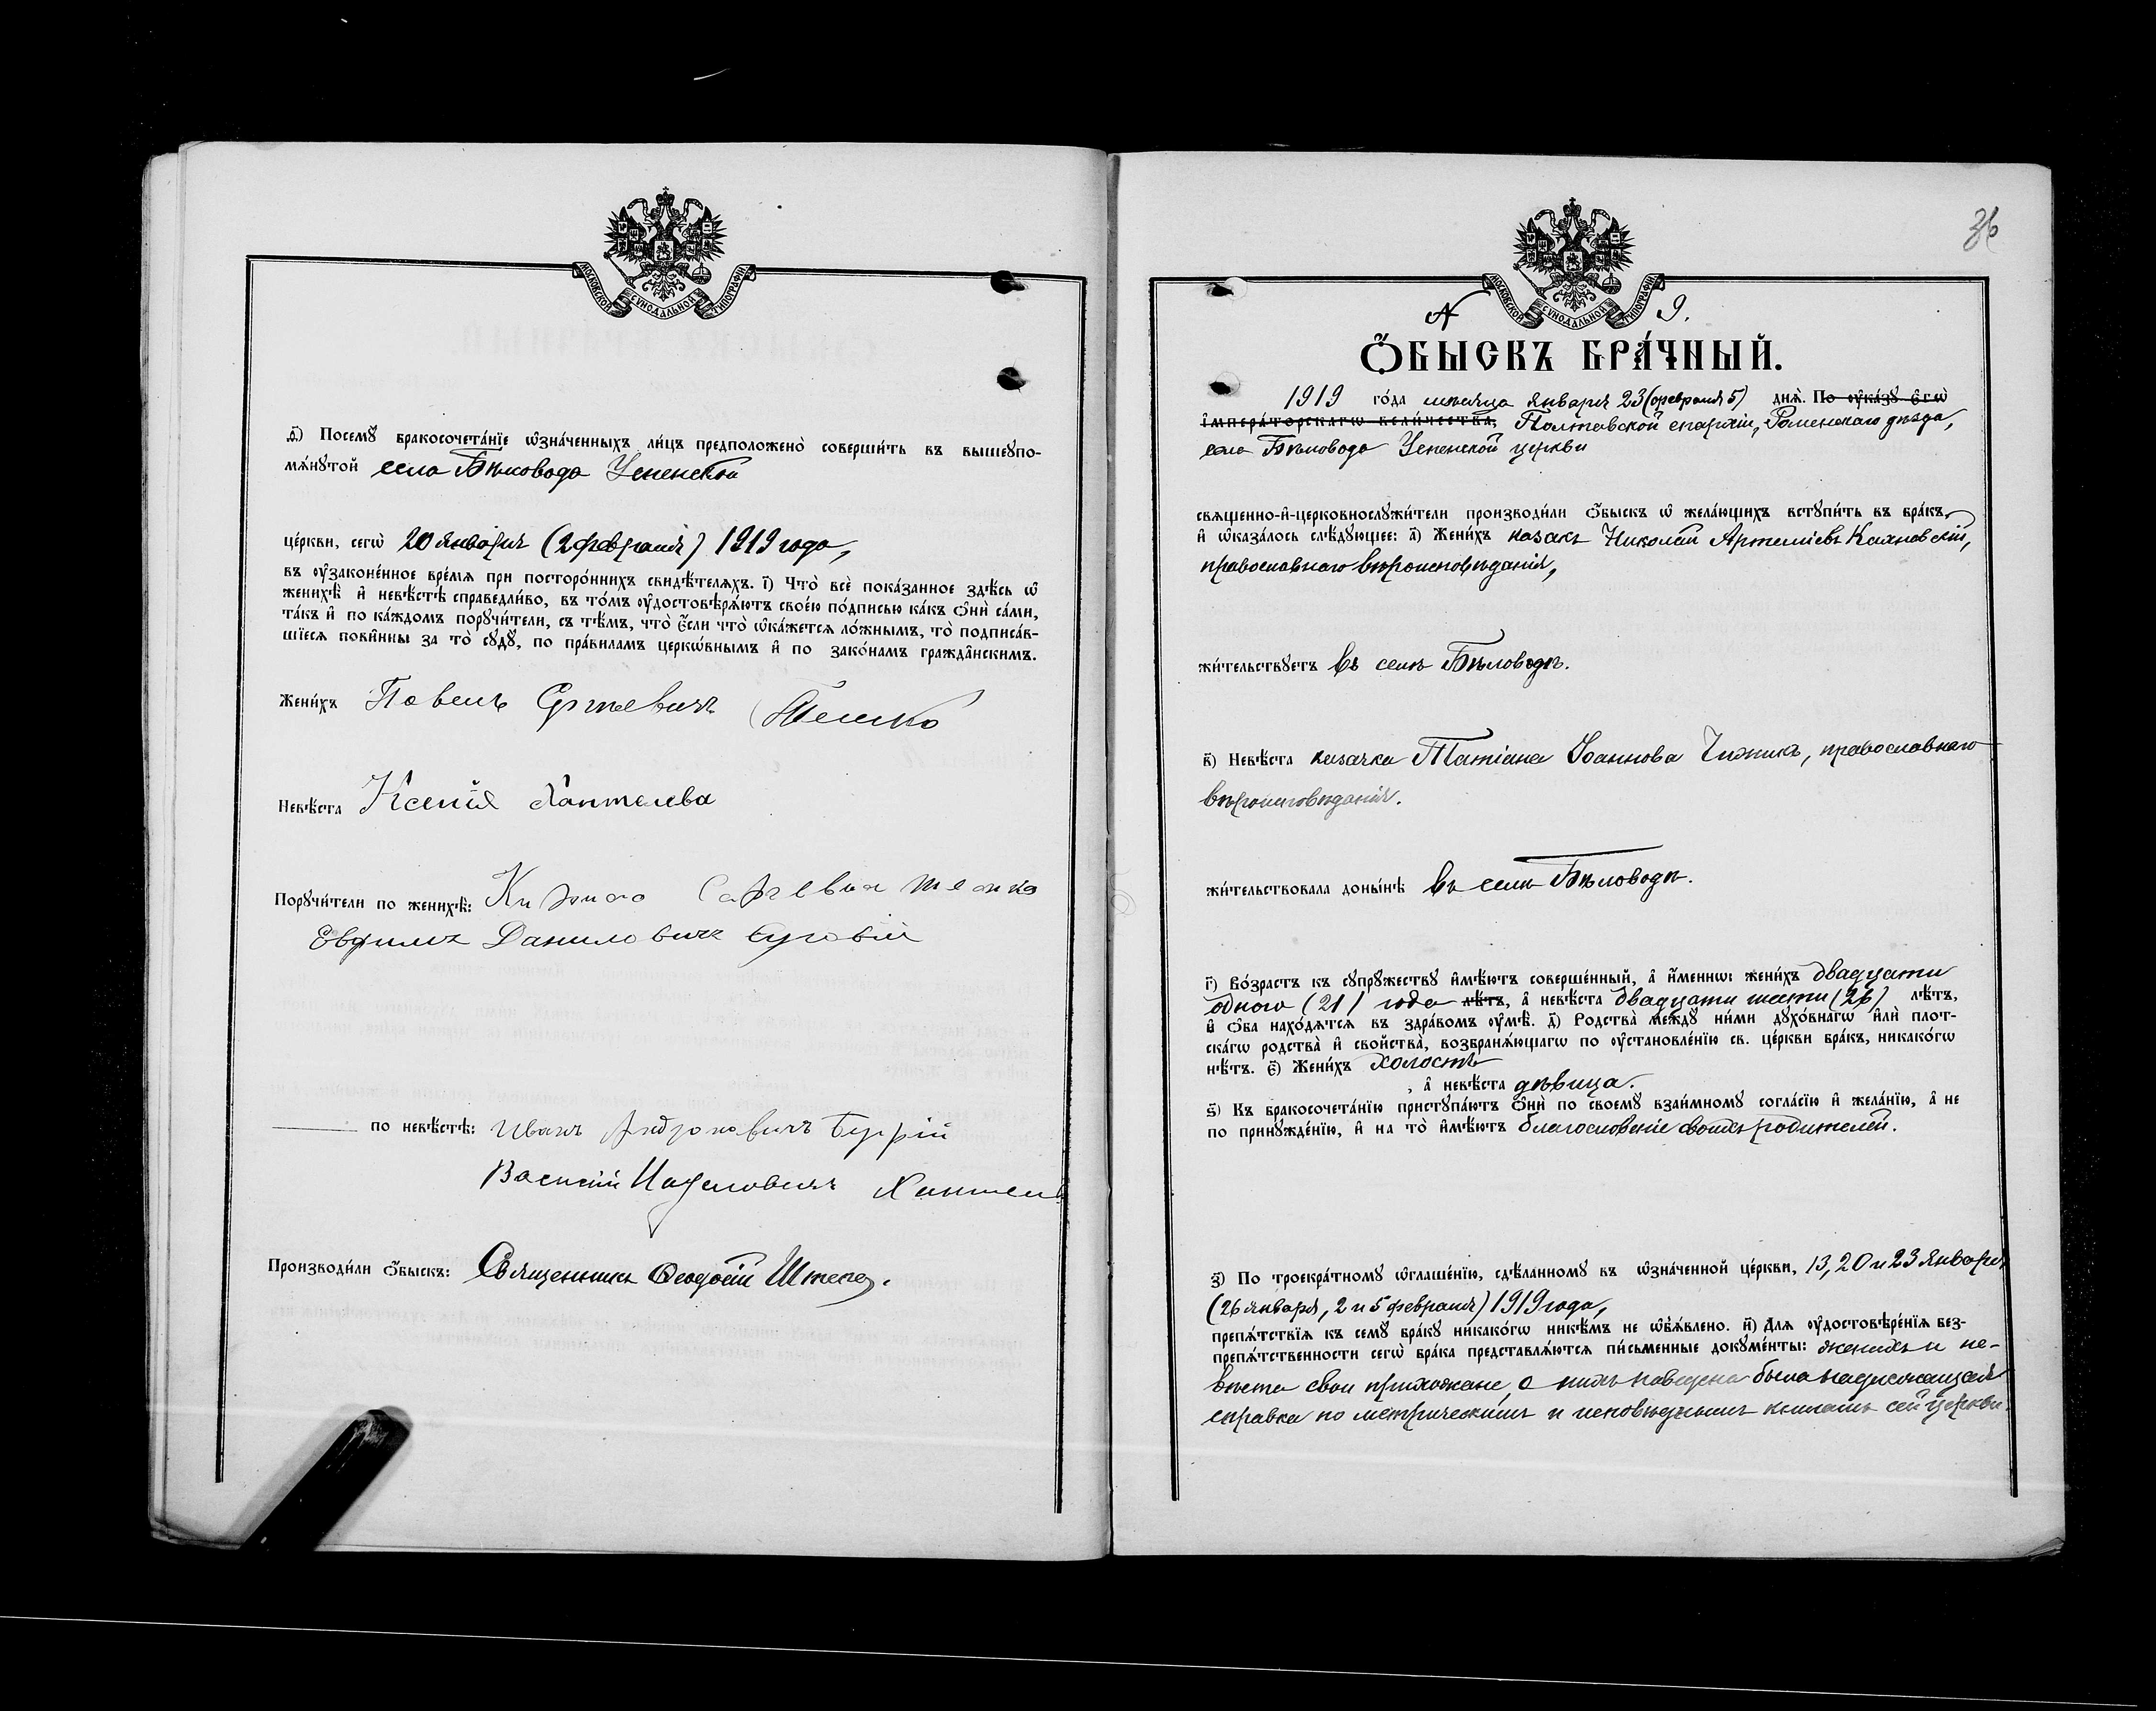 МОСКОВСКОЙ СѴНОДАЛЬНОЙ ТИПОГРАФІИ
ѳ҃) Посемꙋ бракосочета́нїе ѡ҆зна́ченныхъ ли́цъ предположено̀ соверши́ть въ вышеꙋпо-
мѧ́нꙋтой села Бѣловода Успенской
це́ркви, сегѡ̀ 20 января (2 февраля) 1919 года,
въ ᲂу҆законе́нное вре́мѧ при посторо́ннихъ свидѣ́телѧхъ. і҃) Что̀ всѐ пока́занное здѣ́сь ѡ҆
женихѣ̀ и҆ невѣ́стѣ справедли́во, въ то́мъ ᲂу҆достовѣрѧ́ютъ свое́ю по́дписью ка́къ ѻ҆нѝ са́ми,
та́къ и҆ по ка́ждомъ порꙋчи́тели, съ тѣ́мъ, что̀ є҆́сли что̀ ѡ҆ка́жетсѧ ло́жнымъ, то̀ подписа́в-
шїесѧ пови́нны за то̀ сꙋдꙋ̀, по пра́виламъ церкѡ́внымъ и҆ по зако́намъ гражда́нскимъ.
Жени́хъ Павелъ Сргѣевичъ Тешко
Невѣ́ста Ксенія Хоптелева
Порꙋчи́тели по женихѣ̀: Кирило
Евфимъ Даниловичъ
по невѣ́стѣ: Иванъ
Василій
Производи́ли ѻ҆́быскъ: Священникъ Ѳеодосій Штепа.
36
МОСКОВСКОЙ СѴНОДАЛЬНОЙ ТИПОГРАФІИ
№ 9.
Ѻ҆́БЫСКЪ БРА́ЧНЫЙ.
1919 го́да мѣсяца января 23 (февраля 5) днѧ̀. По ᲂу҆ка́зꙋ є҆гѡ̀
і҆мпера́торскагѡ вели́чества, Полтавской епархіи, Роменскаго уѣзда,
села Бѣловода Успенской церкви
свѧще́нно-и҆-церковнослꙋжи́тели производи́ли ѻ҆́быскъ ѡ҆ жела́ющихъ встꙋпи́ть въ бра́къ,
и҆ ѡ҆каза́лось слѣ́дꙋющее: а҃) Жени́хъ казакъ Николай Артеміевъ Каяновскій,
православнаго вѣроисповѣданія,
жи́тельствꙋетъ въ селѣ Бѣловодѣ.
в҃) Невѣ́ста казачка Татіана Іоаннова Чижикъ, православнаго
вѣроисповѣданія.
жи́тельствовала доны́нѣ въ селѣ Бѣловодѣ.
г҃) Во́зрастъ къ сꙋпрꙋ́жествꙋ и҆мѣ́ютъ соверше́нный, а҆ и҆́меннѡ: жени́хъ двадцати
одного (21) года лѣ́тъ, а҆ невѣ́ста двадцати шести (26) лѣ́тъ,
и҆ ѻ҆́ба нахо́дѧтсѧ въ здра́вомъ ᲂу҆мѣ̀. д҃) Родства̀ междꙋ̀ ни́ми дꙋхо́внагѡ и҆лѝ плот-
ска́гѡ родства̀ и҆ сво́йства, возбранѧ́ющагѡ по ᲂу҆становле́нїю св. це́ркви бра́къ, никако́гѡ
нѣ́тъ. є҃) Жени́хъ холостъ
, а҆ невѣ́ста дѣвица.
ѕ҃) Къ бракосочета́нїю пристꙋпа́ютъ ѻ҆нѝ по своемꙋ̀ взаи́мномꙋ согла́сїю и҆ жела́нїю, а҆ не
по принꙋжде́нїю, и҆ на то̀ и҆мѣ́ютъ благословеніе своихъ родителей.
з҃) По троекра́тномꙋ ѡ҆глаше́нїю, сдѣ́ланномꙋ въ ѡ҆зна́ченной це́ркви, 13, 20 и 23 января
(26 января, 2 и 5 февраля) 1919 года,
препѧ́тствїѧ къ семꙋ̀ бра́кꙋ никако́гѡ никѣ́мъ не ѡ҆б̾ѧ́влено. и҃) Длѧ ᲂу҆достовѣре́нїѧ без-
препѧ́тственности сегѡ̀ бра́ка представлѧ́ютсѧ пи́сьменные докꙋме́нты: женихъ и не-
вѣста свои прихожане, о нихъ наведена была надлежащая
справка по метрическимъ и исповѣднымъ книгамъ сей церкви.